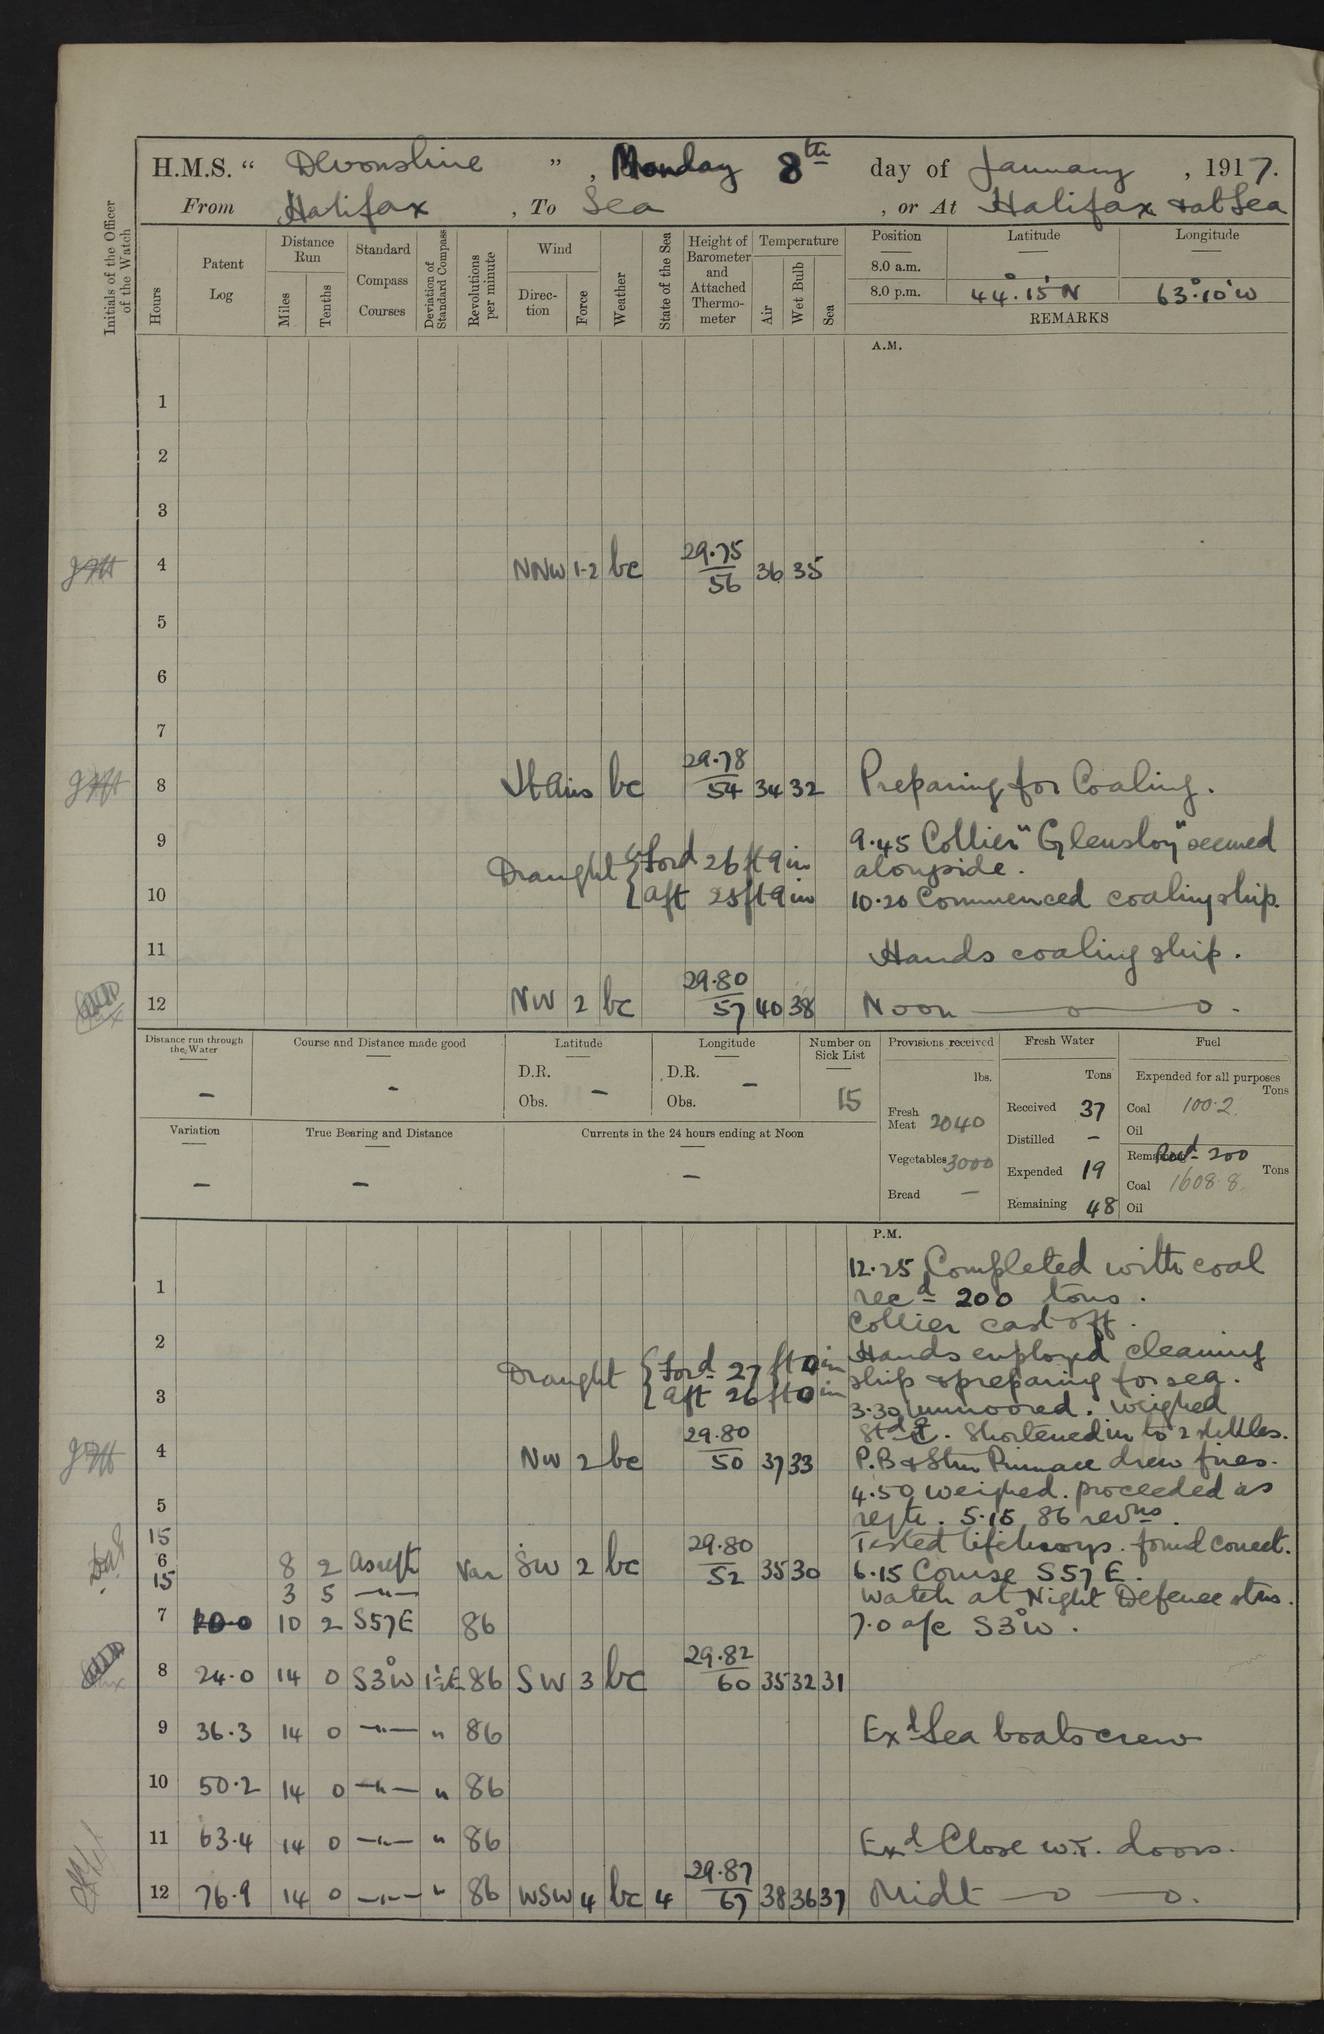 H.M.S. “ Devonshire ” , Monday 8th day of January , 1917.
From Halifax , To Sea , or At Halifax & at Sea
Initials of the Officer of the Watch
Hours
Patent Log
Distance Run
Miles
Tenths
Standard Compass Courses
Deviation of Standard Compass
Revolutions per minute
Wind
Direc-tion
Force
Weather
State of the Sea
Height of Barometer and Attached Thermo-meter
Temperature
Air
Wet Bulb
Sea
Position
Latitude
Longitude
8.0 a.m.
8.0 p.m. 44°.15'N 63°.10'W
REMARKS
A.M.
1
2
3
4 NNW 1-2 bc 29.75 56 36 35
5
6
7
8 Lt Airs bc 29.78 54 34 32 Preparing for Coaling.
9 9.45 Collier "Glensloy" secured
Draught { Ford 26 ft 9 in alongside.
10 { aft 25 ft 9 in 10.20 Commenced coaling ship.
11 Hands coaling ship.
12 NW 2 bc 29.80 57 40 38 Noon —o—o.
Distance run through the Water
–
Course and Distance made good
–
Latitude
D.R.
Obs. –
Longitude
D.R.
Obs. –
Number on Sick List
15
Provisions received
lbs.
Fresh Meat 2040
Vegetables 3000
Bread –
Fresh Water
Tons
Received 37
Distilled –
Expended 19
Remaining 48
Fuel
Expended for all purposes
Tons
Coal 100.2
Oil
Remaining Recd 200
Tons
Coal 1608.8
Oil
Variation
–
True Bearing and Distance
–
Currents in the 24 hours ending at Noon
–
P.M.
12.25 Completed with coal
1 recd 200 tons.
Collier cast off.
2 Hands employed cleaning
Draught { Ford 27 ft 0 in ship & preparing for sea.
3 { aft 26 ft 0 in 3.30 unmoored. weighed
Stbd ⚓. Shortened in to 2 shkles.
4 NW 2 bc 29.80 50 37 33 P.B & Stm Pinnace drew fires.
4.50 weighed. proceeded as
5 reqte. 5.15 86 revns.
15 Tested lifebuoys. found correct.
6 8 2 as reqte Var SW 2 bc 29.80 52 35 30 6.15 Course S57E.
15 3 5 –"– Watch at Night Defence stns.
7 20.0 10 2 S57E 86 7.0 a/c S3°W.
8 24.0 14 0 S3°W 1½E 86 SW 3 bc 29.82 60 35 32 31
9 36.3 14 0 –"– " 86 Exd Sea boats crew
10 50.2 14 0 –"– " 86
11 63.4 14 0 –"– " 86 Exd Close W.T. doors.
12 76.9 14 0 –"– " 86 WSW 4 bc 4 29.87 67 38 36 37 Midt —o—o.